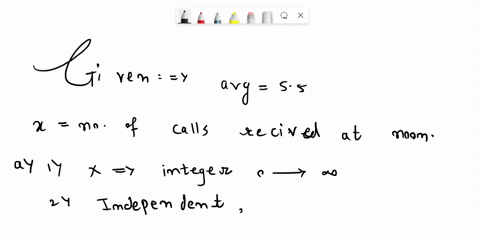 Given :=> avg = 5.5
x = no. of calls recived at noon.
a> 1> x => integer 0 → ∞
2> Independent,